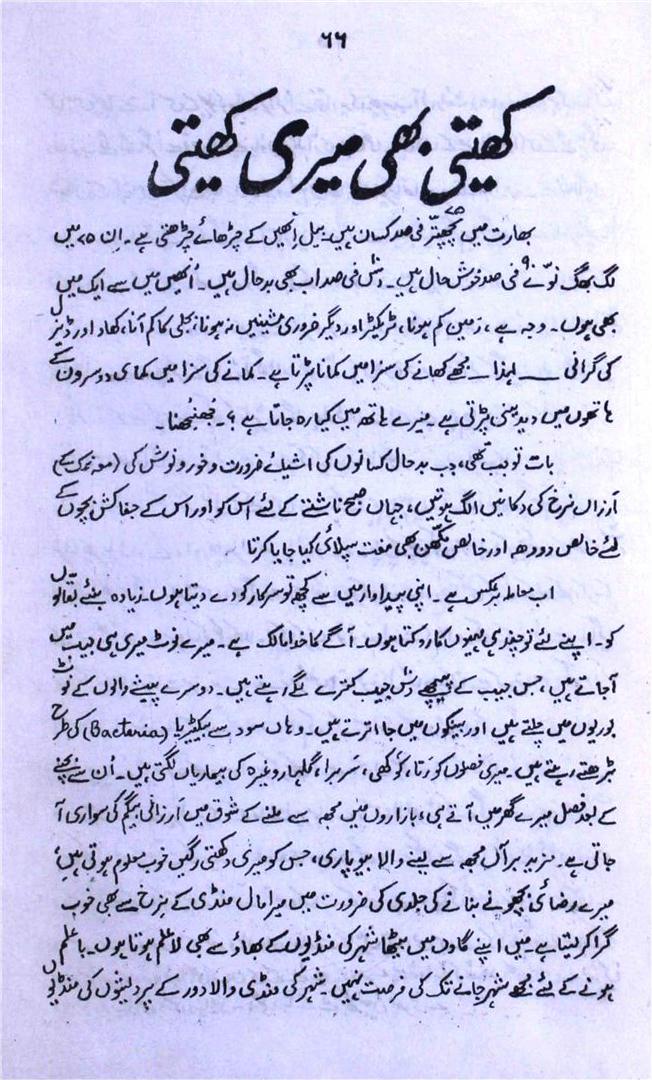 ۶۶
کھیتی بھی میری کھیتی
بھارت میں پچھتّر ۷۵ فی صد کسان ہیں۔ بیل انھیں کے چڑھائے چڑھتی ہے۔ اِن ۷۵ میں
لگ بھگ نوّے ۹۰ فی صد خوش حال ہیں۔ دس فی صد اب بھی بدحال ہیں۔ اُنھیں میں سے ایک میں
بھی ہوں۔ وجہ ہے، زمین کم ہونا، ٹریکٹر اور دیگر ضروری مشینیں نہ ہونا، بجلی کا کم آنا، کھاد اور ڈیزل
کی گرانی ــــ لہٰذا ــ مجھے کھانے کی سزا میں کمانا پڑتا ہے۔ کمانے کی سزا میں کمائی دوسروں کے
ہاتھوں میں دیدینی پڑتی ہے۔ میرے ہاتھ میں کیا رہ جاتا ہے ؟۔ جُھنجُھنا۔
بات تو جب تھی، جب بدحال کسانوں کی اشیائے ضرورت و خور و نوش کی
ارزاں نرخ کی دکانیں الگ ہوتیں، جہاں صبح ناشتے کے لئے اس کو اور اس کے جفاکش بچّوں کے
لئے خالص دودھ اور خالص مکھّن بھی مفت سپلائی کیا جایا کرتا
اب معاملہ برعکس ہے۔ اپنی پیداوار میں سے کچھ تو سرکار کو دے دیتا ہوں۔ زیادہ بنئے بقالوں
کو۔ اپنے لئے تو چند ہی مہینوں کا رکھتا ہوں۔ آگے کا خدا مالک ہے۔ میرے نوٹ میری ہی جیب میں
آجاتے ہیں، جس جیب کے پیچھے دس جیب کترے لگے رہتے ہیں۔ دوسرے پیشے والوں کے نوٹ
بوریوں میں چلتے ہیں اور بینکوں میں جا اترتے ہیں۔ وہاں سود سے بیکٹیریا (Bacteria) کی طرح
بڑھتے رہتے ہیں۔ میری فصلوں کو رتا، کوکھی، سربرا، گلہار وغیرہ کی بیماریاں لگتی ہیں۔ اُن سے بچنے
کے بعد فصل میرے گھر میں آتے ہی، بازاروں میں مجھ سے ملنے کے شوق میں ارزانی بیگم کی سواری آ
جاتی ہے۔ مزید برآں مجھ سے لینے والا بیوپاری، جس کو میری دکھتی رگیں خوب معلوم ہوتی ہیں،
میرے رضائی بچھونے بنانے کی جلدی کی ضرورت میں میرا مال منڈی کے نرخ سے بھی خوب
گرا کر لیتا ہے۔ میں اپنے گاوں میں بیٹھا شہر کی منڈیوں کے بھاؤ سے بھی لا علم ہوتا ہوں۔ با علم
ہونے کے لئے مجھے شہر جانے تک کی فرصت نہیں۔ شہر کی منڈی والا دور کے پردیسوں کی منڈیوں